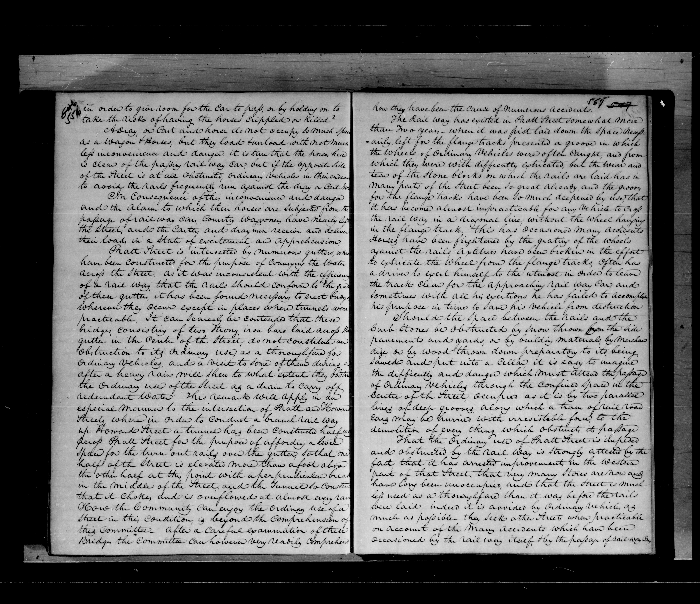 in order to give room for the Car to pass, or by holding on to
take the risks of having their horses crippled or killed.
A Dray or Cart and horse do not occupy so much space
as a Wagon & Horses, but they load & unload with not much
less inconvenience and danger it is true that the horse
is clear of the passing rail way Car but if the opposite side
of the Street is at all obstructed, Ordinary Vehicles in their endeavor
to avoid the rails frequently run against the Dray or Cart
In Consequence of the inconvenience and danger
and the alarm to which their horses are subjected from the
passage of railway Cars Country Wagoners have nearly
the Street, and the Carters and draymen receive and deliver
their loads in a State of excitement and apprehension
Pratt Street is intersected by numerous gutters
for the purpose of Conveying the Water
across the Street. As it was inconsistent with the
of a Rail way that the rails should conform to the
of these gutters it has been found necessary to erect bridges
wherever they occur except in places where tunnels were
practicable. It can scarcely be contended that these
bridges consisting of two strong iron bars laid across the
gutter in the Center of the Street, do not constitute an
Obstruction to its ordinary use, as a thoroughfare for
Ordinary Vehicles, and a visit to one of them during or
after a heavy rain will show to what extent they
the Ordinary use of the Street as a drain to carry off
redundant Water. This remark will apply in an
especial Manner to the intersection of Pratt and Howard
Streets, where in order to Conduct a branch rail way
up Howard Street a tunnel has been constructed half
across Pratt Street for the purpose of affording a level
space for the turn out rails over the gutter, so that one
half of the Street is elevated more than a foot above
the other half at the point with a perpendicular break
in the middle of the Street, and the tunnel so Constructed
that it chokes and is overflowed at almost every rain
How the Community can enjoy the Ordinary use of a
Street in this Condition is beyond the Comprehension of
the Committee. After a Careful examination of this
Bridge the Committee can however very readily Comprehend
how they have been the cause of numerous accidents.
The Rail way has existed in Pratt Street somewhat more
than two years, when it was first laid down the space
left for the flange tracks presented a groove in which
the wheels of Ordinary Vehicles were often caught, and from
which they were with difficulty extricated but the wear and
tear of the Stone blocks on which the rails are laid has in
Many parts of the Street been so great already and the groove
for the flange tracks have been so much deepened by use, that
it has become almost impracticable for any Vehicle to cross
the rail way in a diagonal line, without the wheel hanging
in the flange track. This has occasioned many accidents
Horses have been frightened by the grating of the wheels
against the rails & axles have been broken in the effort
to extricate the Wheel from the flange track. Often has
a driver to exert himself to the utmost in order to leave
the track clear for the approaching rail way Car and
sometimes with all his exertions he has failed to accomplish
his purpose in time to save his Vehicle from destruction
Should the space between the Rails and the
Curb Stones be obstructed by snow thrown from the side
pavements and yards, or by building materials by Merchan
dize or by wood thrown down preparatory to its being
sawed and put into a cellar it is easy to imagine
the difficulty and danger which must attend the passage
of Ordinary Vehicles through the Confined Space in the
Center of the Street occupied as it is by two parallel
lines of deep grooves, along which a train of rail road
Cars may be driven with irresistible force to the
demolition of every thing which obstructs its passage
That the Ordinary use of Pratt Street is impeded
and obstructed by the Rail Way is strongly attested by the
fact that it has arrested improvement in the Western
part of that Street, that very many Stores are now and
have long been unoccupied and that the Street is much
less used as a thoroughfare than it was before the rails
were laid indeed it is avoided by Ordinary Vehicles as
much as possible. They seek other Streets when practicable
on account of the Many accidents which have been
occasioned by the rail way itself & by the passage of railway Cars